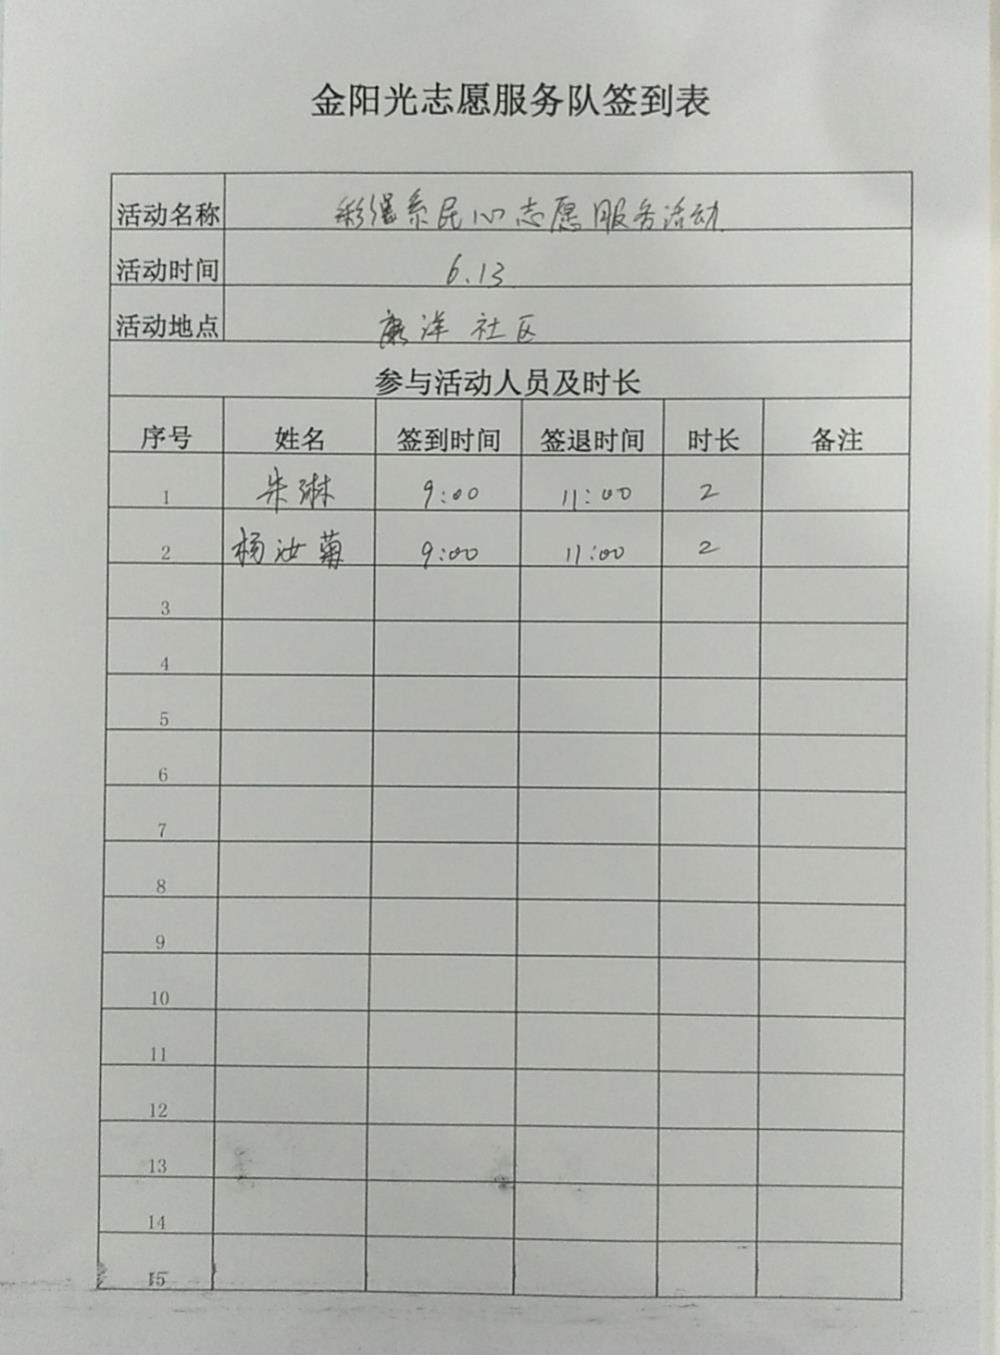 金阳光志愿服务队签到表
活动名称 彩绳系民心志愿服务活动
活动时间 6.13
活动地点 康洋社区
参与活动人员及时长
序号 姓名 签到时间 签退时间 时长 备注
1 朱琳 9:00 11:00 2
2 杨汝菊 9:00 11:00 2
3
4
5
6
7
8
9
10
11
12
13
14
15